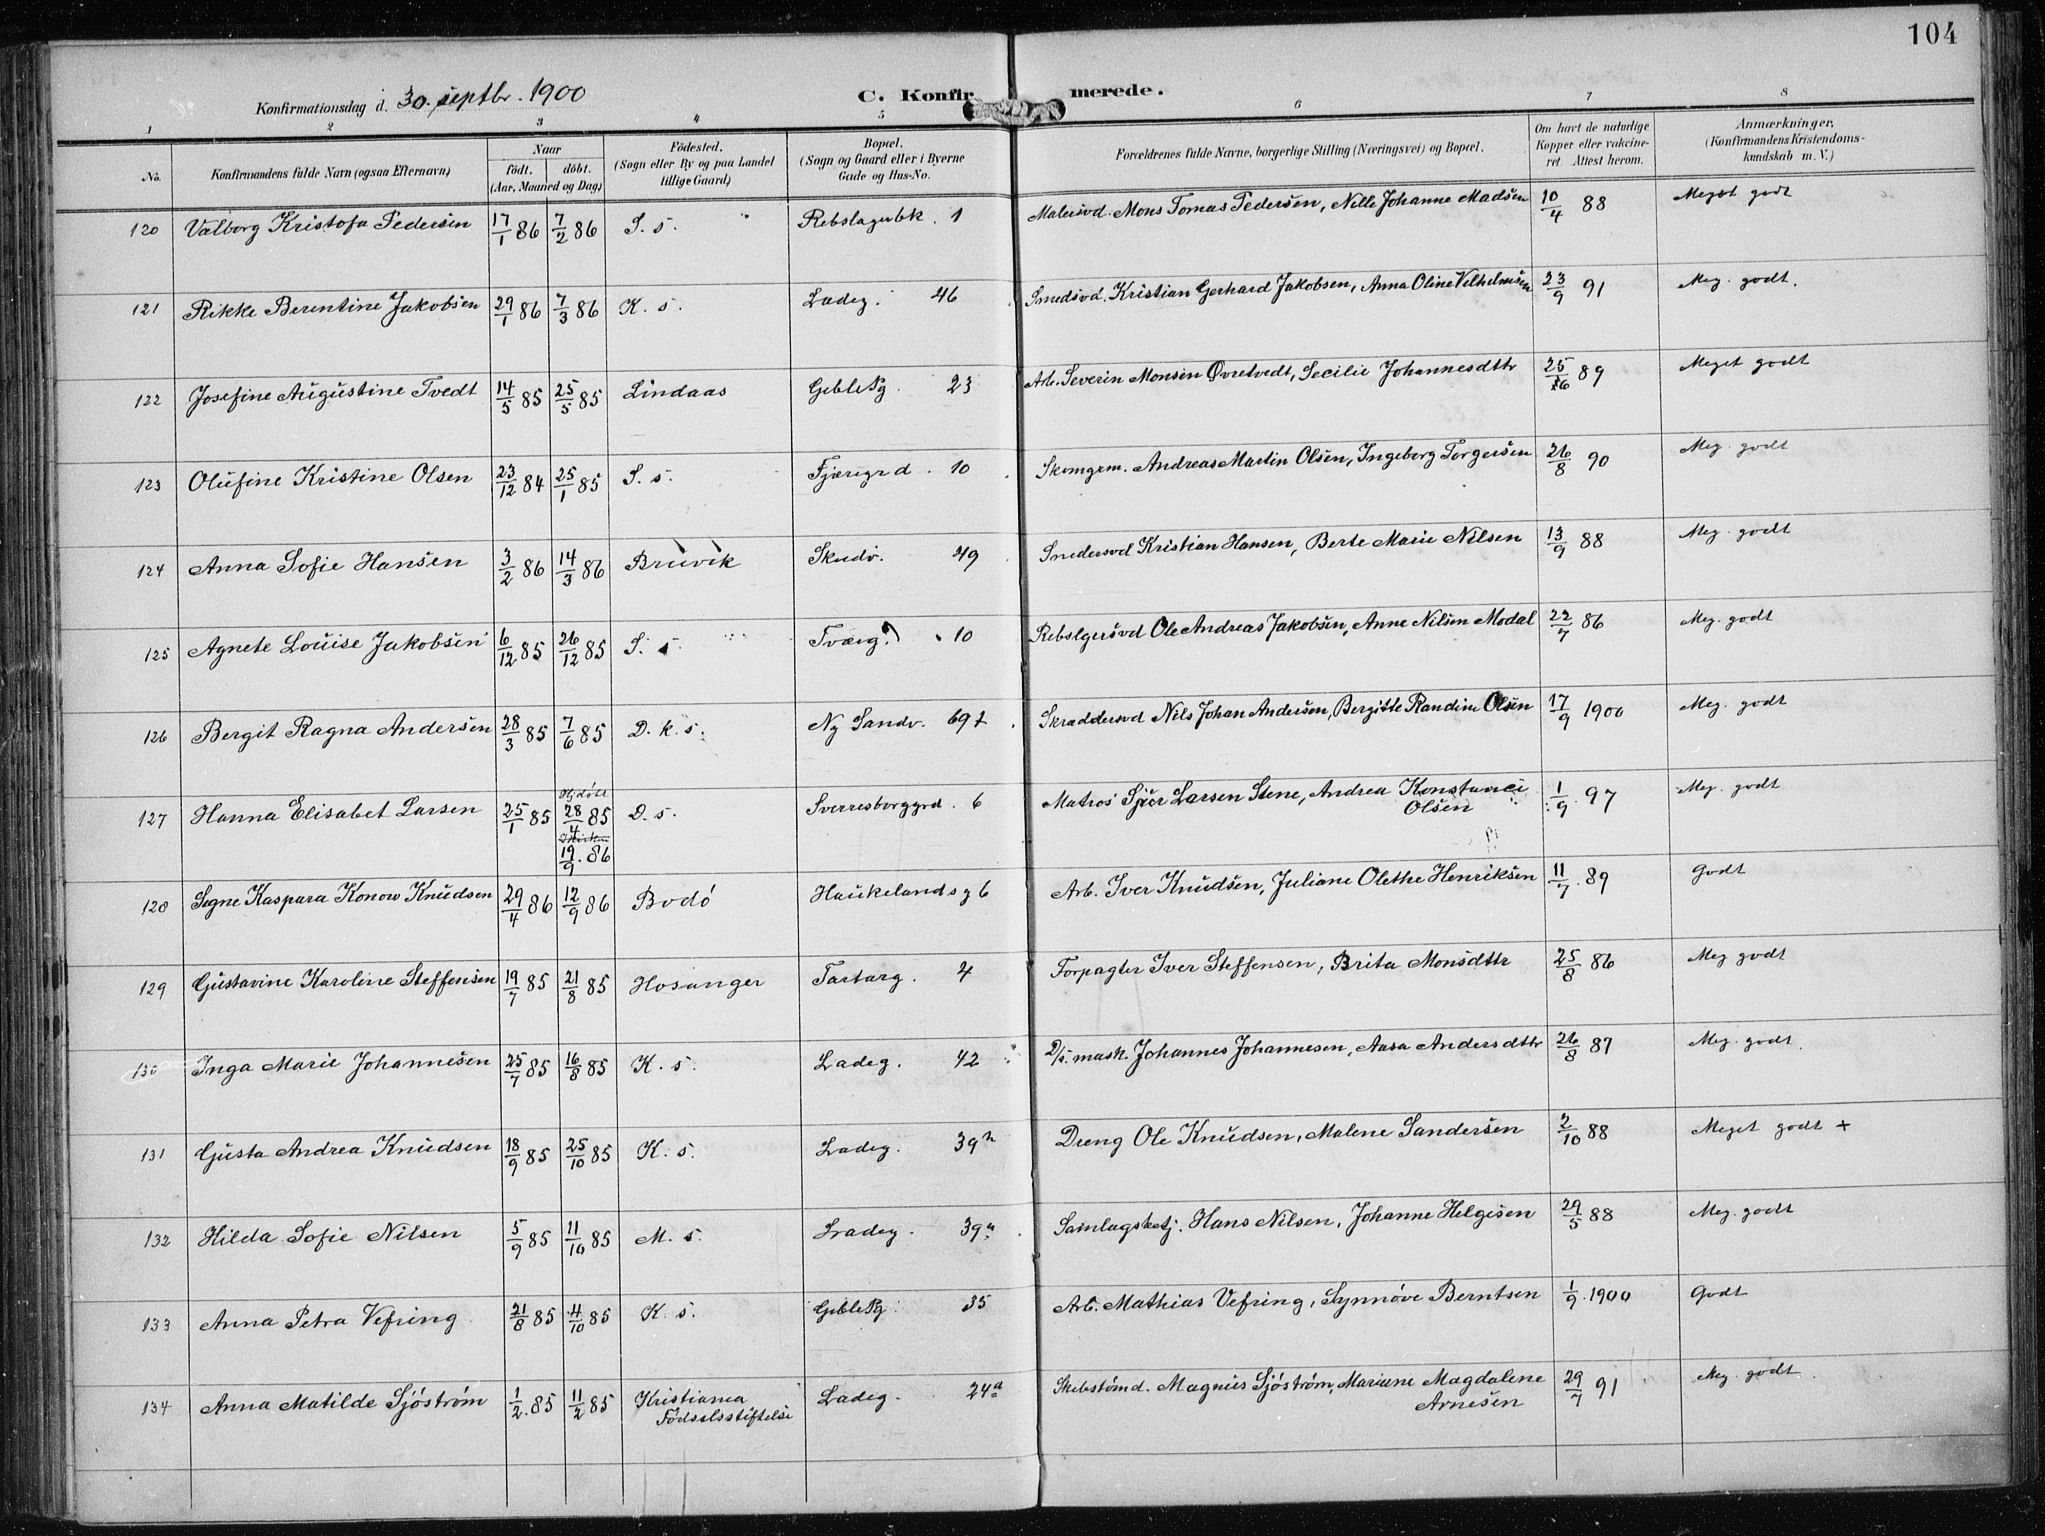 104
Konfirmationsdag d. 30. septbr. 1900 C. Konfirmerede.
1 2 3 4 5 6 7 8
No. Konfirmandens fulde Navn (ogsaa Efternavn) Naar födt. döbt. (Aar, Maaned og Dag) Födested. (Sogn eller By og paa Landet tillige Gaard) Bopæl. (Sogn og Gaard eller i Byerne Gade og Hus-No. Forældrenes fulde Navne, borgerlige Stilling (Næringsvei) og Bopæl. Om havt de naturlige Kopper eller vakcineret. Attest herom. Anmærkninger. (Konfirmandens Kristendomskundskab m. V.)
120 Valborg Kristofa Pedersen 17/1 86 7/2 86 S. s. Rebslagerbk. 1 Malersvd. Mons Tomas Pedersen, Nille Johanne Madsen 10/4 88 Meget godt
121 Rikke Berentine Jakobsen 29/1 86 7/3 86 K. s. Ladeg. 46 Smedsvd. Kristian Gerhard Jakobsen, Anna Oline Vilhelmsen 23/9 91 Meg. godt.
122 Josefine Augustine Tvedt 14/5 85 25/5 85 Lindaas GeblePg. 23 Arb. Severin Monsen Øvretvedt, Secilie Johannesdttr 25/6 89 Meget godt
123 Olufine Kristine Olsen 23/12 84 25/1 85 S. s. Fjæregrd. 10 Skomgrm. Andreas Martin Olsen, Ingeborg Torgersen 26/8 90 Meg. godt
124 Anna Sofie Hansen 3/2 86 14/3 86 Bruvik Skudv. 49 Smedersvd Kristian Hansen, Berte Marie Nilsen 13/9 88 Meg. godt
125 Agnete Louise Jakobsen 6/12 85 26/12 85 S. s. Tværg. 10 Rebslgersvd Ole Andreas Jakobsen, Anne Nilsen Modal 22/7 86 Meg. godt
126 Bergit Ragna Andersen 28/3 85 7/6 85 D. k. s. Ny Sandv. 69 Skraddersvd Nils Johan Andersen, Bergitte Randine Olsen 17/9 1900 Meg. godt
127 Hanna Elisabet Larsen 25/1 85 Hjdöbt 28/4 85 D. s. Sverresborggrd. 6 Matros Sjur Larsen Stene, Andrea Konstance 1/9 97 Meg. godt
Olsen
19/9. 86
128 Signe Kaspara Konow Knudsen 29/4 86 12/9 86 Bodö Haukelandsg 6 Arb. Iver Knudsen, Juliane Olethe Henriksen 11/7. 89 Godt
129 Gustavine Karoline Steffensen 19/7 85 21/8 85 Hosanger Tartarg. 4 Forpagter Iver Steffensen, Brita Monsdttr 25/8 86 Meg godt
130 Inga Marie Johannesen 25/7 85 16/8 85 K. s. Ladeg. 42 D/s. mask. Johannes Johannesen, Aasa Andersdttr 26/8 87 Meg. godt.
131 Gusta Andrea Knudsen 18/9 85 25/10 85 K. s. Ladeg. 39 Dreng Ole Knudsen, Malene Sandersen 2/10 88 Meget godt +
132 Hilda Sofie Nilsen 5/9 85 11/10 85 M. s. Ladeg. 39a Samlagsbetj. Hans Nilsen, Johanne Helgesen 29/5 88 Meg. godt
133 Anna Petra Vefring 21/8 85 4/10 85 K. s. GeblePg. 35 Arb. Mathias Vefring, Synnöve Berntsen 1/9. 1900 Godt
134 Anna Matilde Sjöström 1/2. 85 11/2 85 Kristiania Ladeg. 24a Magnus Sjöström, Mariane Magdalene 29/7 91 Meg. godt.
Födselsstiftelse Arnesen